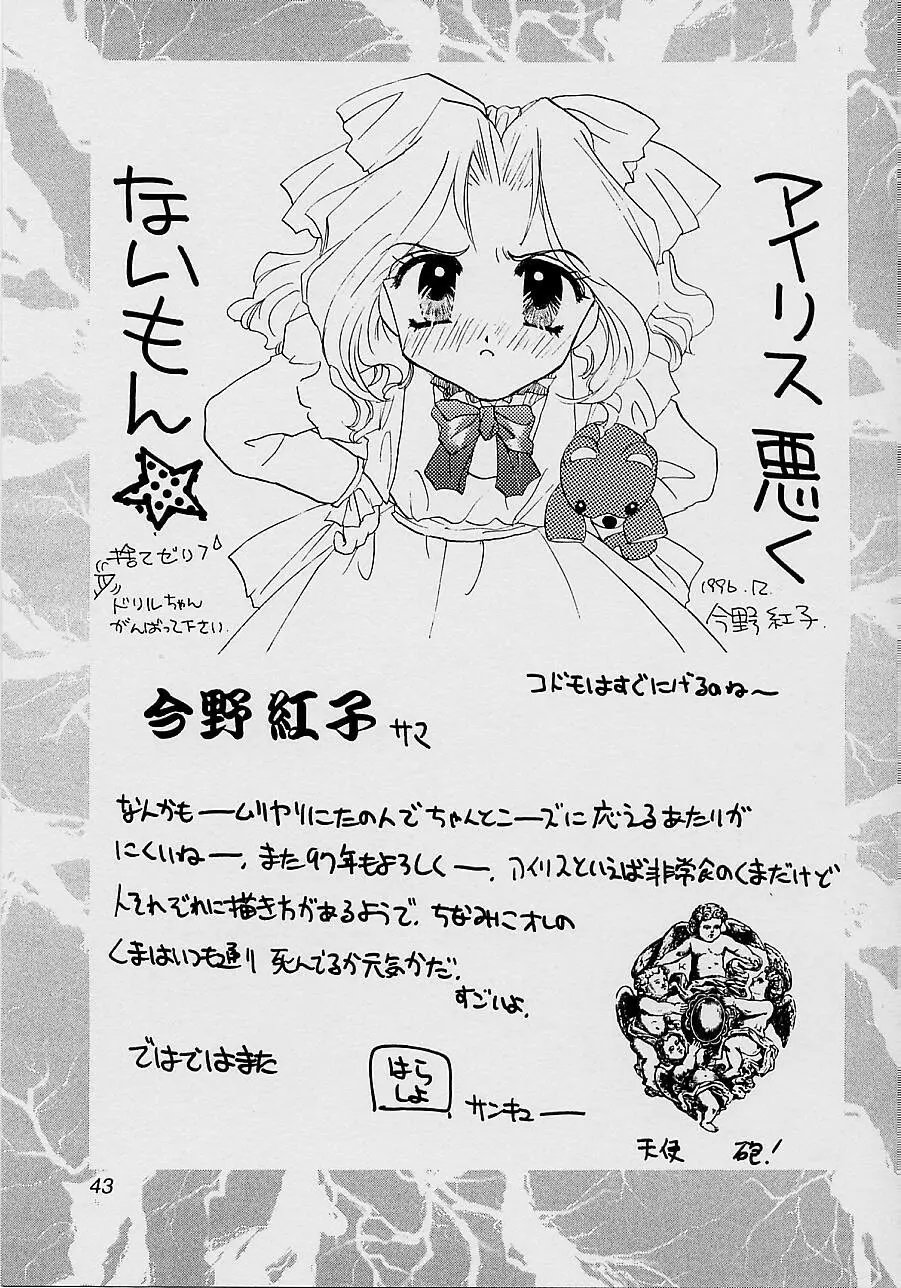 アイリス悪く
ないもん☆
捨てゼリフ
ドリルちゃん
がんばって下さい.
1996.12.
今野紅子.
コドモはすぐにげるのね〜
今野紅子サマ
なんかも──ムリヤリにたのんでちゃんとニーズに応えるあたりが
にくいね──, また97年もよろしく──. アイリスといえば非常食のくまだけど
人それぞれに描き方があるようで, ちなみにオレの
くまはいつも通り 死んでるか元気かだ.
すごいよ.
ではではまた
はら
しよ
サンキュ──
天使 砲!
43